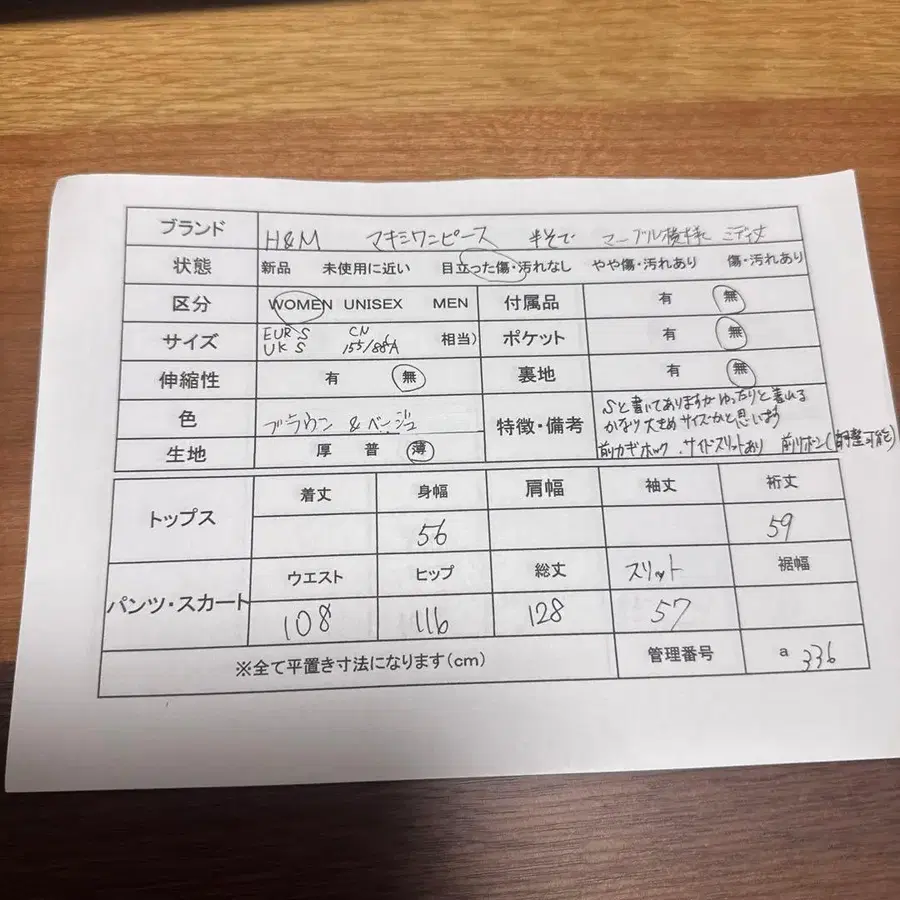 ブランド H&M マキシワンピース 半そで マーブル模様 ミディ丈
状態 新品 未使用に近い 目立った傷・汚れなし やや傷・汚れあり 傷・汚れあり
区分 WOMEN UNISEX MEN 付属品 有 無
サイズ EUR S CN 相当) ポケット 有 無
UK S 155/88A
伸縮性 有 無 裏地 有 無
色 ブラウン & ベージュ 特徴・備考 Sと書いてありますがゆったりと着れる
かなり大きめサイズかと思います
生地 厚 普 薄 前カギホック、サイドスリットあり 前リボン(調整可能)
トップス 着丈 身幅 肩幅 袖丈 裄丈
56 59
パンツ・スカート ウエスト ヒップ 総丈 スリット 裾幅
108 116 128 57
※全て平置き寸法になります(cm) 管理番号 a 336